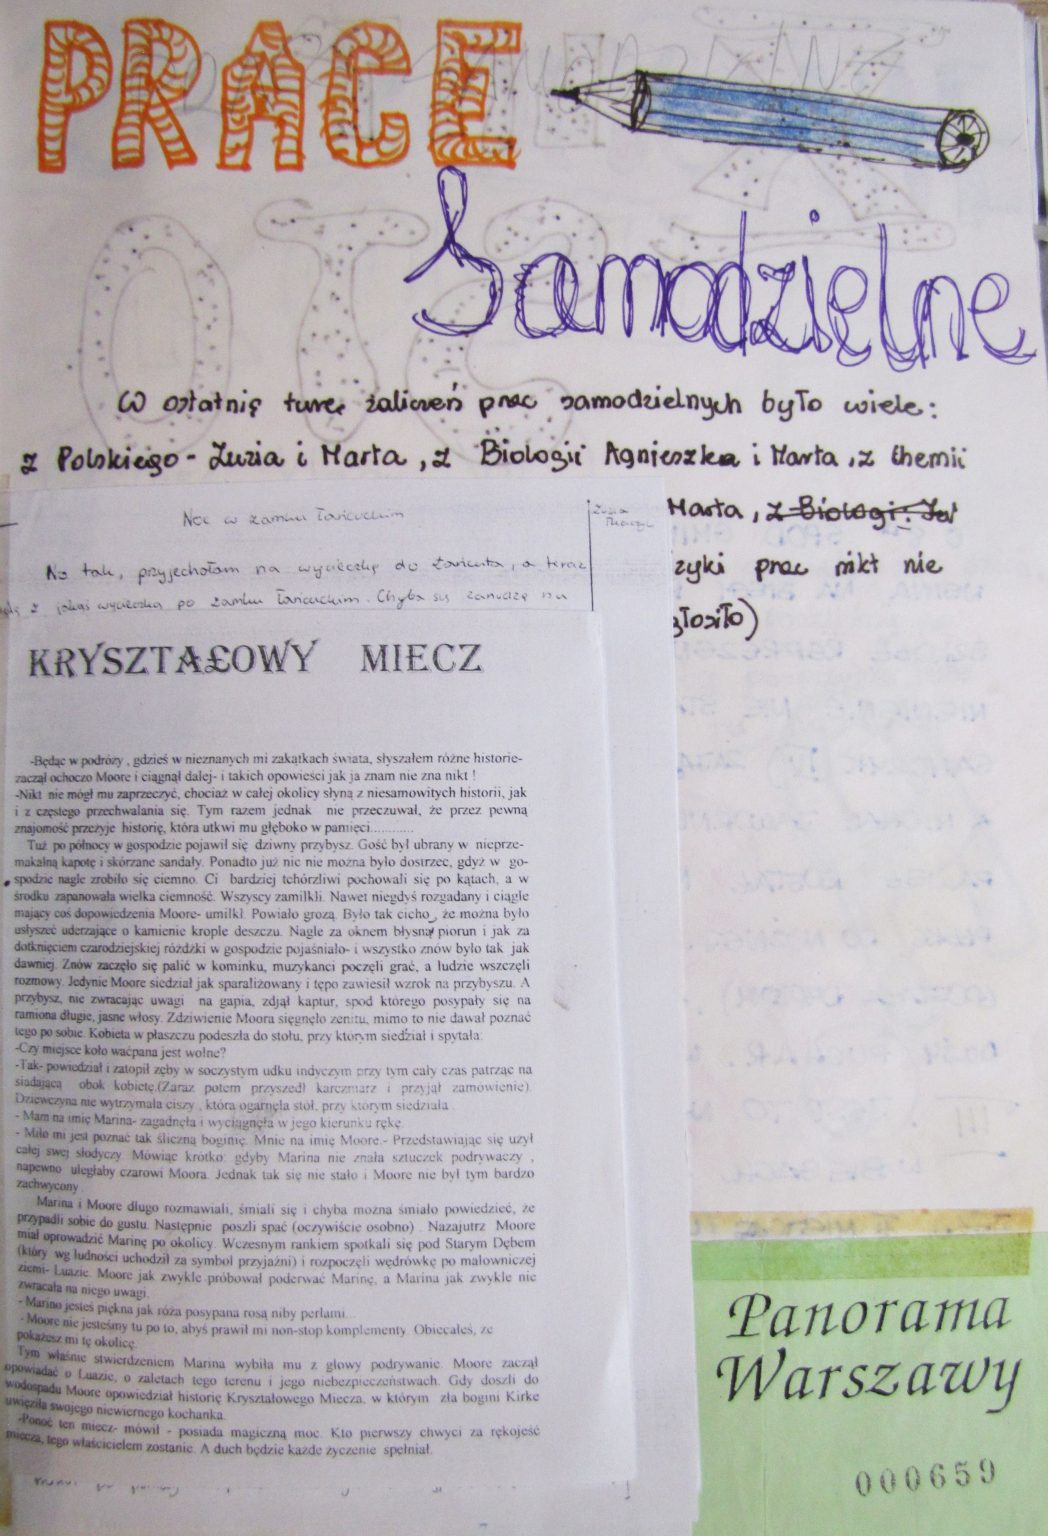 PRACE
Samodzielne
W ostatnię turę zaliczeń prac samodzielnych było wiele:
z Polskiego - Zuzia i Marta, z Biologii Agnieszka i Marta, z Chemii
Marta, z Biologi:
zyki prac nikt nie
zgłosiło)
Noc w zamku Łańcuckim
Zuzia
No tak, przyjechałam na wycieczkę do Łańcuta, a teraz
z jakąś wycieczką po zamku Łańcuckim. Chyba się zanudzę na
KRYSZTA£OWY MIECZ
-Będąc w podróży , gdzieś w nieznanych mi zakątkach świata, słyszałem różne historie-
zaczął ochoczo Moore i ciągnął dalej- i takich opowieści jak ja znam nie zna nikt !
-Nikt nie mógł mu zaprzeczyć, chociaż w całej okolicy słyną z niesamowitych historii, jak
i z częstego przechwalania się. Tym razem jednak nie przeczuwał, że przez pewną
znajomość przeżyje historię, która utkwi mu głęboko w pamięci............
Tuż po północy w gospodzie pojawił się dziwny przybysz. Gość był ubrany w nieprze-
makalną kapotę i skórzane sandały. Ponadto już nic nie można było dostrzec, gdyż w go-
spodzie nagle zrobiło się ciemno. Ci bardziej tchórzliwi pochowali się po kątach, a w
środku zapanowała wielka ciemność. Wszyscy zamilkli. Nawet niegdyś rozgadany i ciągle
mający coś dopowiedzenia Moore- umilkł. Powiało grozą. Było tak cicho, że można było
usłyszeć uderzające o kamienie krople deszczu. Nagle za oknem błysnął piorun i jak za
dotknięciem czarodziejskiej różdżki w gospodzie pojaśniało- i wszystko znów było tak jak
dawniej. Znów zaczęło się palić w kominku, muzykanci poczęli grać, a ludzie wszczęli
rozmowy. Jedynie Moore siedział jak sparaliżowany i tępo zawiesił wzrok na przybyszu. A
przybysz, nie zwracając uwagi na gapia, zdjął kaptur, spod którego posypały się na
ramiona długie, jasne włosy. Zdziwienie Moora sięgnęło zenitu, mimo to nie dawał poznać
tego po sobie. Kobieta w płaszczu podeszła do stołu, przy którym siedział i spytała:
-Czy miejsce koło waćpana jest wolne?
-Tak- powiedział i zatopił zęby w soczystym udku indyczym przy tym cały czas patrząc na
siadającą obok kobietę.(Zaraz potem przyszedł karczmarz i przyjął zamówienie).
Dziewczyna nie wytrzymała ciszy , która ogarnęła stół, przy którym siedziała.
- Mam na imię Marina- zagadnęła i wyciągnęła w jego kierunku rękę.
- Miło mi jest poznać tak śliczną boginię. Mnie na imię Moore.- Przedstawiając się użył
całej swej słodyczy. Mówiąc krótko: gdyby Marina nie znała sztuczek podrywaczy ,
napewno uległaby czarowi Moora. Jednak tak się nie stało i Moore nie był tym bardzo
zachwycony .
Marina i Moore długo rozmawiali, śmiali się i chyba można śmiało powiedzieć, że
przypadli sobie do gustu. Następnie poszli spać (oczywiście osobno) . Nazajutrz Moore
miał oprowadzić Marinę po okolicy. Wczesnym rankiem spotkali się pod Starym Dębem
(który wg ludności uchodził za symbol przyjaźni) i rozpoczęli wędrówkę po malowniczej
ziemi- Luazie. Moore jak zwykle próbował poderwać Marinę, a Marina jak zwykle nie
zwracała na niego uwagi.
- Marino jesteś piękna jak róża posypana rosą niby perłami...
- Moore nie jesteśmy tu po to, abyś prawił mi non-stop komplementy. Obiecałeś, że
pokażesz mi tę okolicę.
Tym właśnie stwierdzeniem Marina wybiła mu z głowy podrywanie. Moore zaczął
opowiadać o Luazie, o zaletach tego terenu i jego niebezpieczeństwach. Gdy doszli do
wodospadu Moore opowiedział historię Kryształowego Miecza, w którym zła bogini Kirke
uwięziła swojego niewiernego kochanka.
-Ponoć ten miecz- mówił - posiada magiczną moc. Kto pierwszy chwyci za rękojeść
miecza, tego właścicielem zostanie. A duch będzie każde życzenie spełniał.
Panorama
Warszawy
000659